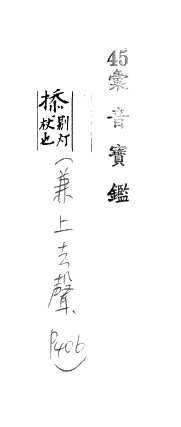 45彙音寶鑑
掭剔灯杖也(兼上去聲、P406)